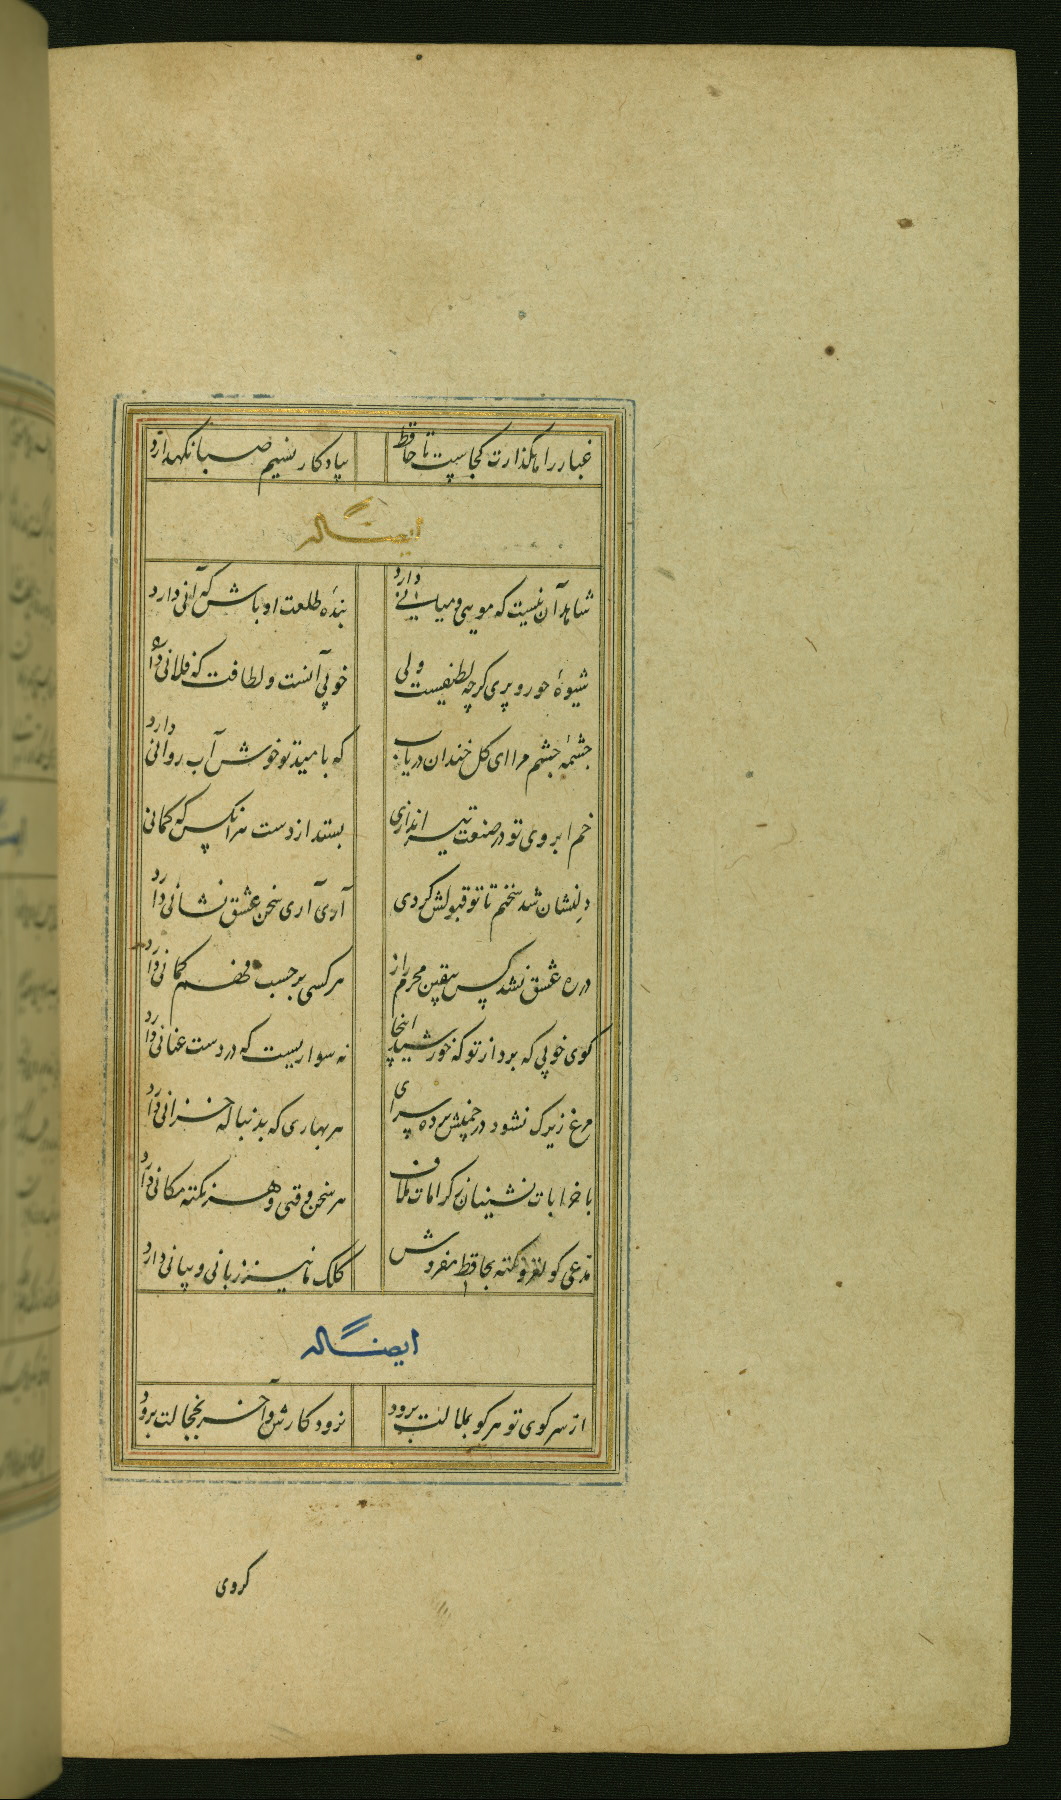 غبار راهگذارت کجاست تا حافظ بیادگار نسیم صبا نگهدارد
ایضاً له
شاهد آن نیست که مویی و میانی دارد بندهٔ طلعت او باش که آنی دارد
شیوهٔ حور و پری گرچه لطیفست ولی خوبی آنست و لطافت که فلانی دارد
چشمهٔ چشم مرا ای گل خندان دریاب که بامید تو خوش آب روانی دارد
خم ابروی تو در صنعت تیراندازی بستد از دست هر آنکس که کمانی
دلنشان شد سخنم تا تو قبولش کردی آری آری سخن عشق نشانی دارد
در ره عشق نشد کس بیقین محرم راز هر کسی بر حسب فهم گمانی دارد
گوی خوبی که برد از تو که خورشید اینجا نه سواریست که در دست عنانی دارد
مرغ زیرک نشود در چمنش پرده سرای هر بهاری که بدنباله خزانی دارد
با خرابات نشینان ز کرامات ملاف هر سخن وقتی و هر نکته مکانی دارد
مدعی گو لغز و نکته بحافظ مفروش کلک ما نیز زبانی و بیانی دارد
ایضاً له
از سر کوی تو هر کو بملالت برود نرود کارش و آخر بخجالت برود
کروی